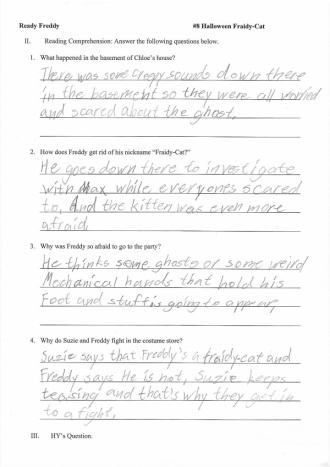 Ready Freddy #8 Halloween Fraidy-Cat
II. Reading Comprehension: Answer the following questions below.
1. What happened in the basement of Chloe's house?
There was some creepy sounds down there
in the basement so they were all worried
and scared about the ghost.
2. How does Freddy get rid of his nickname "Fraidy-Cat?"
He goes down there to investigate
with Max while everyones scared
to. And the kitten was even more
afraid.
3. Why was Freddy so afraid to go to the party?
He thinks some ghosts or some weird
Mechanical hands that hold his
Foot and stuff is going to appear.
4. Why do Suzie and Freddy fight in the costume store?
Suzie says that Freddy's a fraidy-cat and
Freddy says He is not, Suzie keeps
teasing and that's why they get in
to a fight.
III. HY's Question.